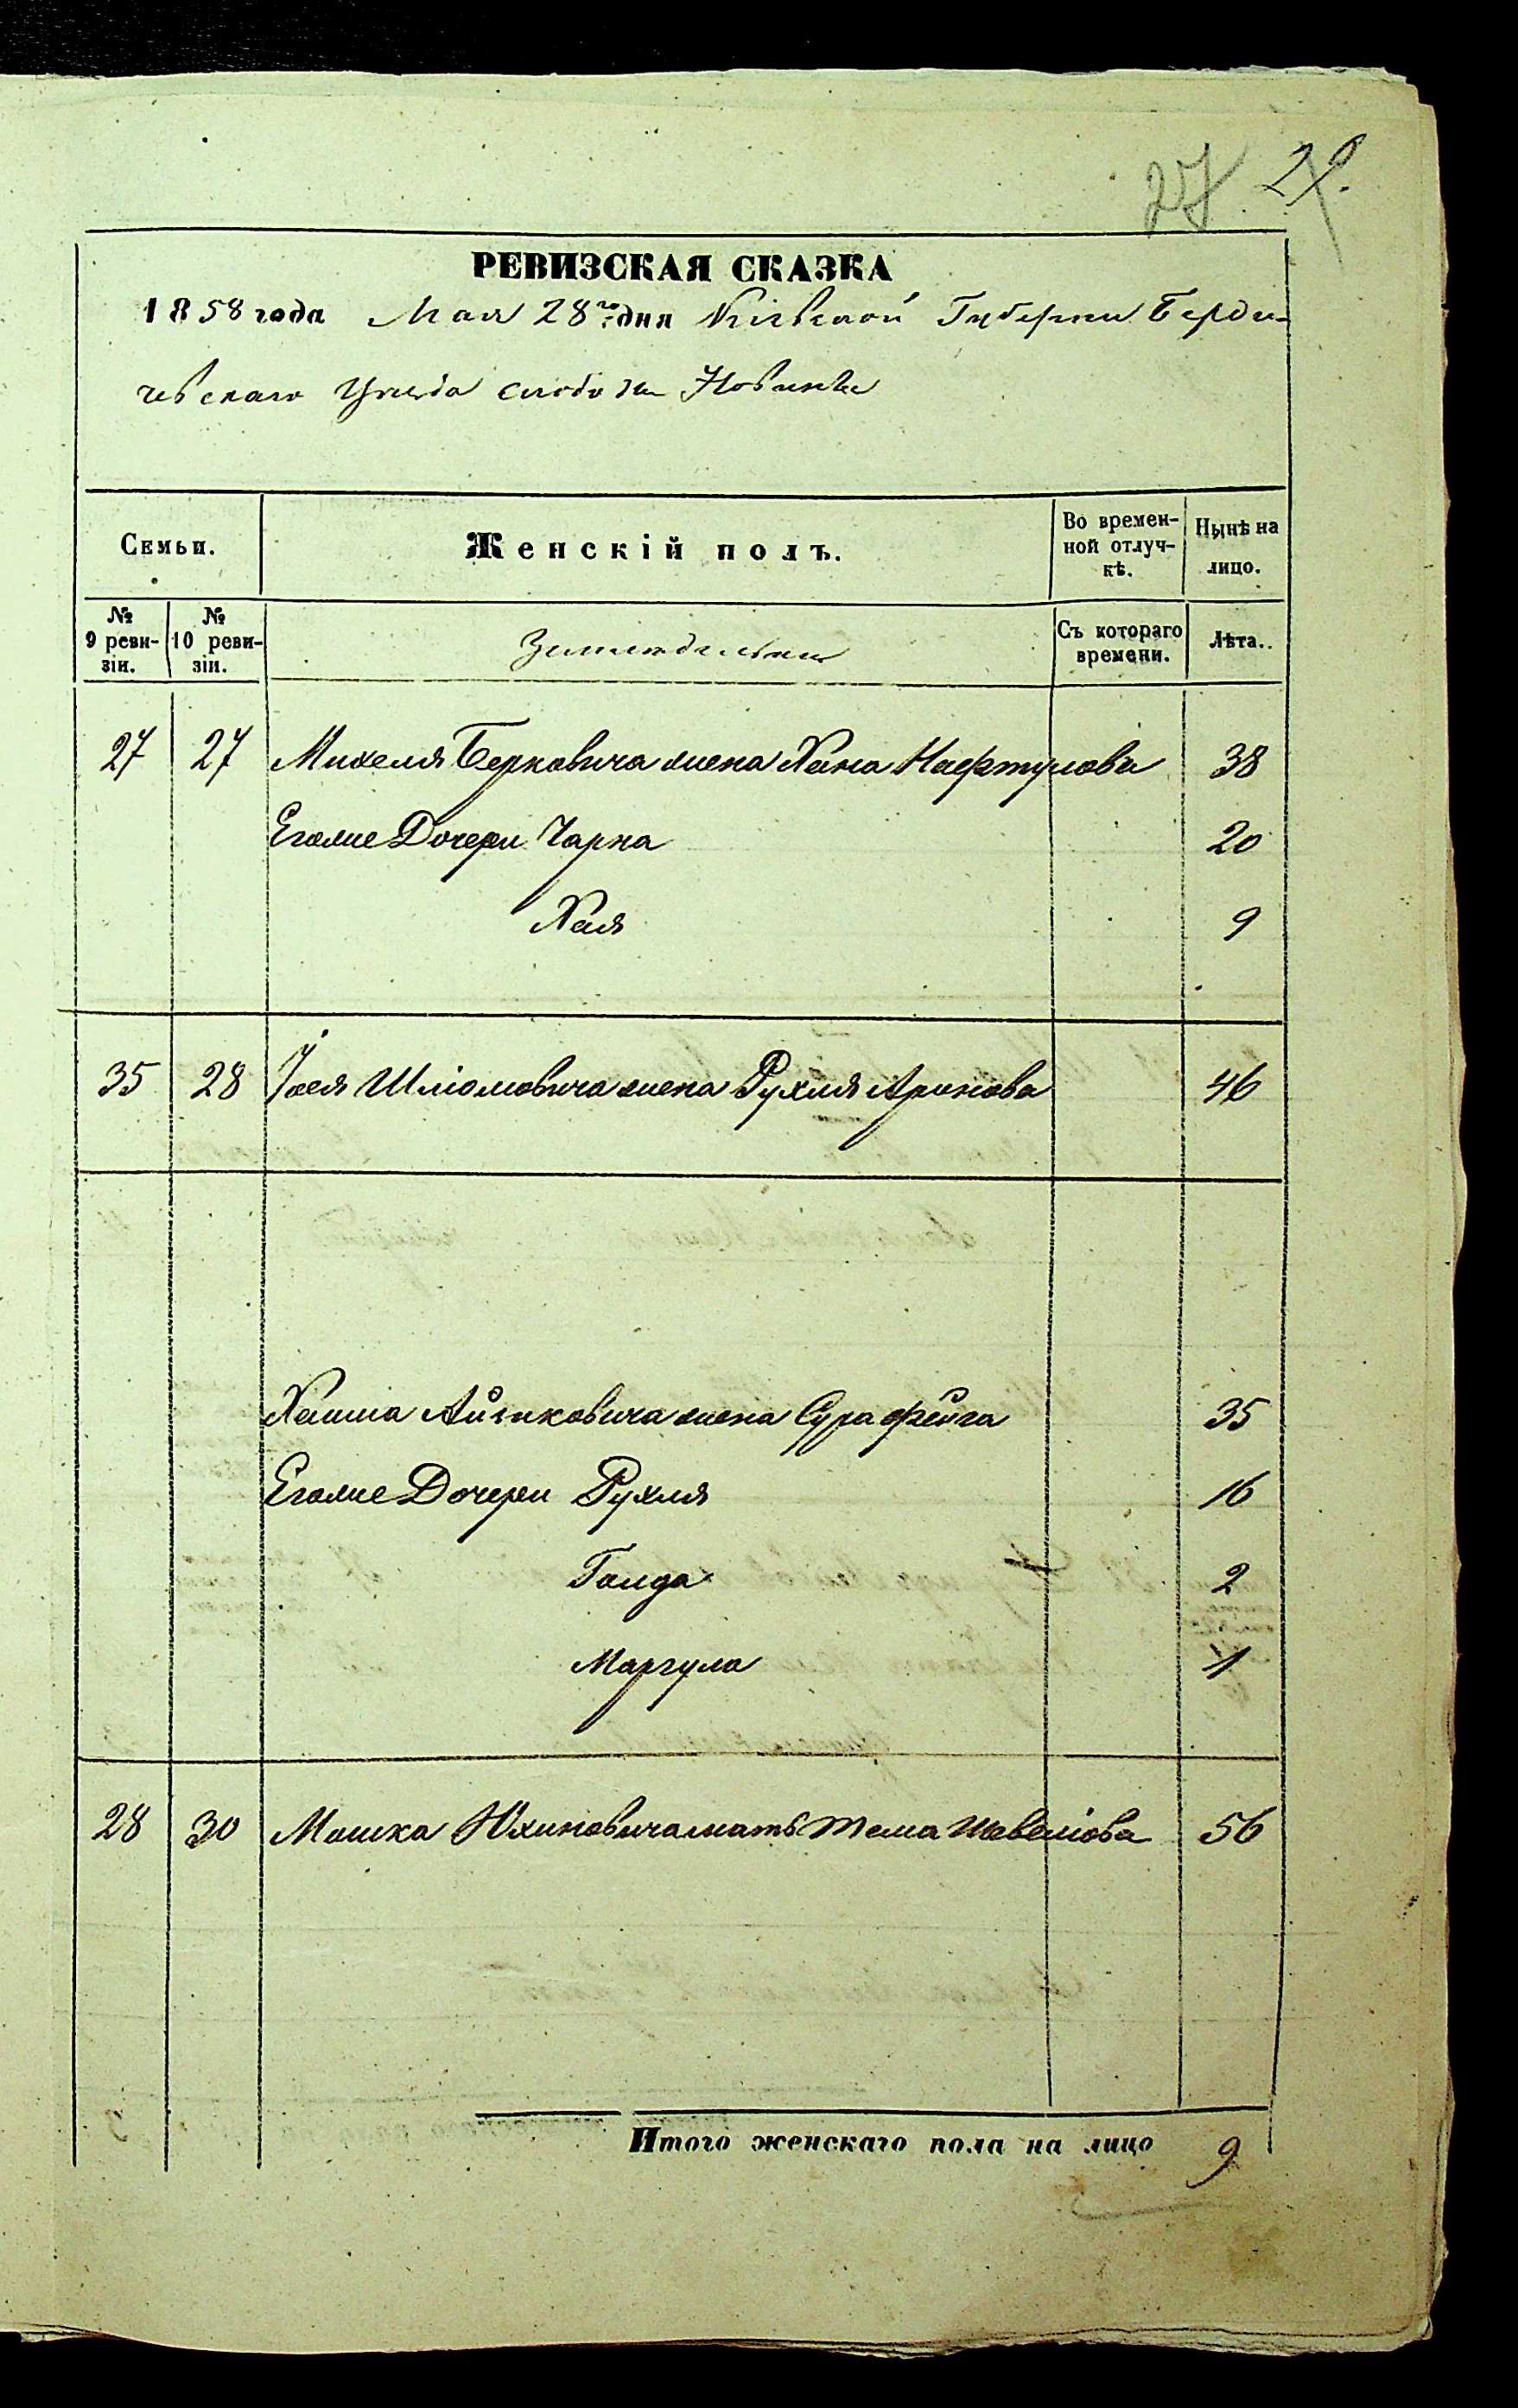 27 29.
РЕВИЗСКАЯ СКАЗКА
1858 года Мая 28го дня Кіевской Губерніи Берди-
чевскаго Уѣзда слободы Новинки
Семьи.
Женскій полъ.
Во времен-
ной отлуч-
кѣ.
Нынѣ на
лицо.
№
9 реви-
зіи.
№
10 реви-
зіи.
Земледельцы
Съ котораго
времени.
Лѣта.
27 27 Михеля Берковича жена Хана Нафтулова 38
Егоже Дочери Чарна 20
Хая 9
35 28 Іося Шліомовича жена Рухля Аронова 46
Хаима жена Сура Фейга 35
Егоже Дочери Рухля 16
Голда 2
Маргула 1
28 30 Мошка мать Тема Шевелiова 56
Итого женскаго пола на лицо 9